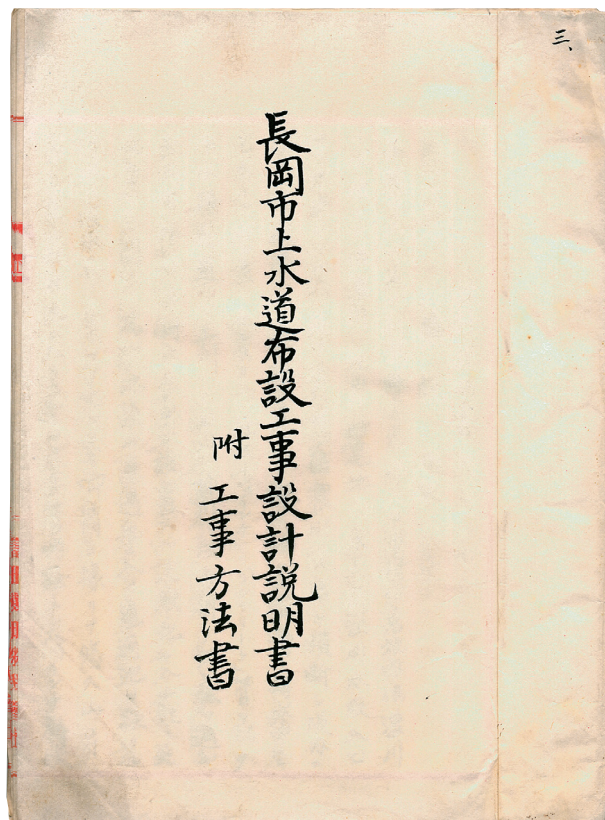 三、
長岡市上水道布設工事設計説明書
附 工事方法書